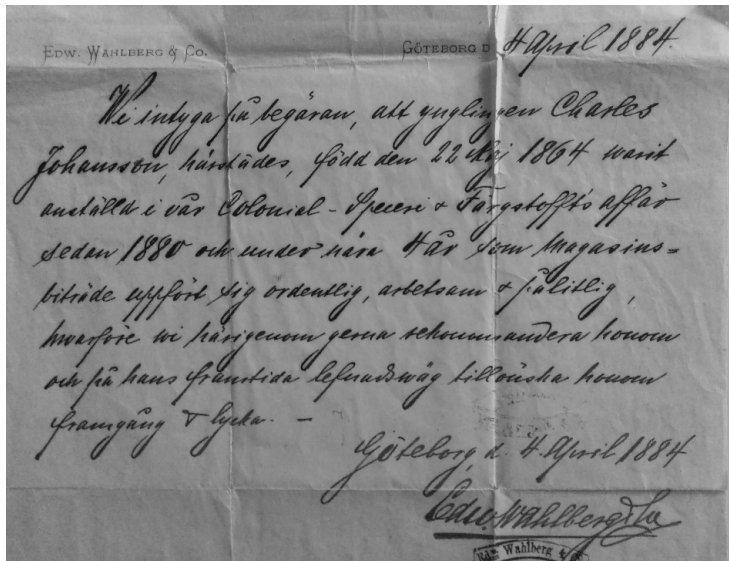 EDW. WAHLBERG & CO. GÖTEBORG D 4 April 1884.
Wi intyga på begäran, att ynglingen Charles
Johansson, härstädes, född den 22 Maj 1864 warit
anställd i vår Colonial- Speceri & Färgstoffts affär
sedan 1880 och under nära 4 år som magasins=
biträde uppfört sig ordentlig, arbetsam & pålitlig,
hvarföre wi härigenom gerna rekommandera honom
och på hans framtida lefnadswäg tillönska honom
framgång & lycka. —
Göteborg, d. 4. April 1884
Edw. Wahlberg & Co
Edw. Wahlberg &